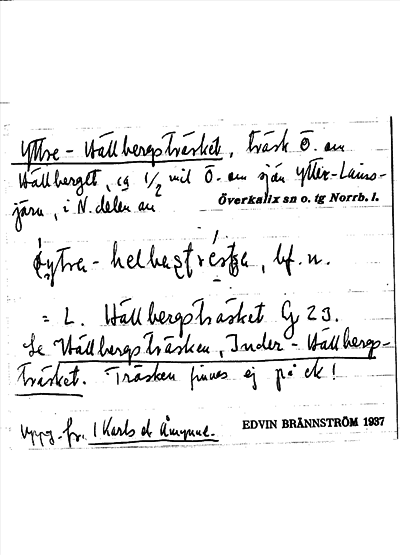 Yttre-Hällbergsträsket, träsk Ö. om
Hällberget, ca 1/2 mil Ö. om sjön Ytter-Lans-
järv, i N. delen av
Överkalix sn o. tg Norrb. l.
bf. n.
= L. Hällbergsträsket G 23.
Se Hällbergsträsken, Inder-Hällbergs-
träsket. Träsken finnes ej på ek!
Uppg. fr.
EDVIN BRÄNNSTRÖM 1937